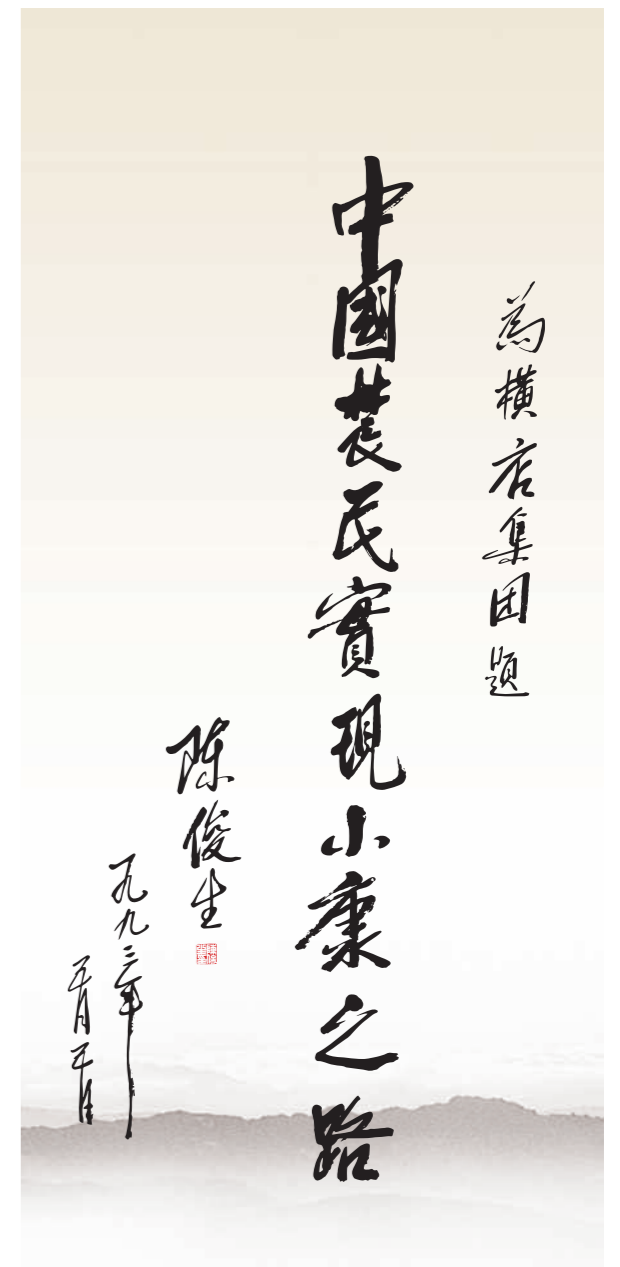 為橫店集团題
中國農民實現小康之路
陈俊生
一九九三年
五月